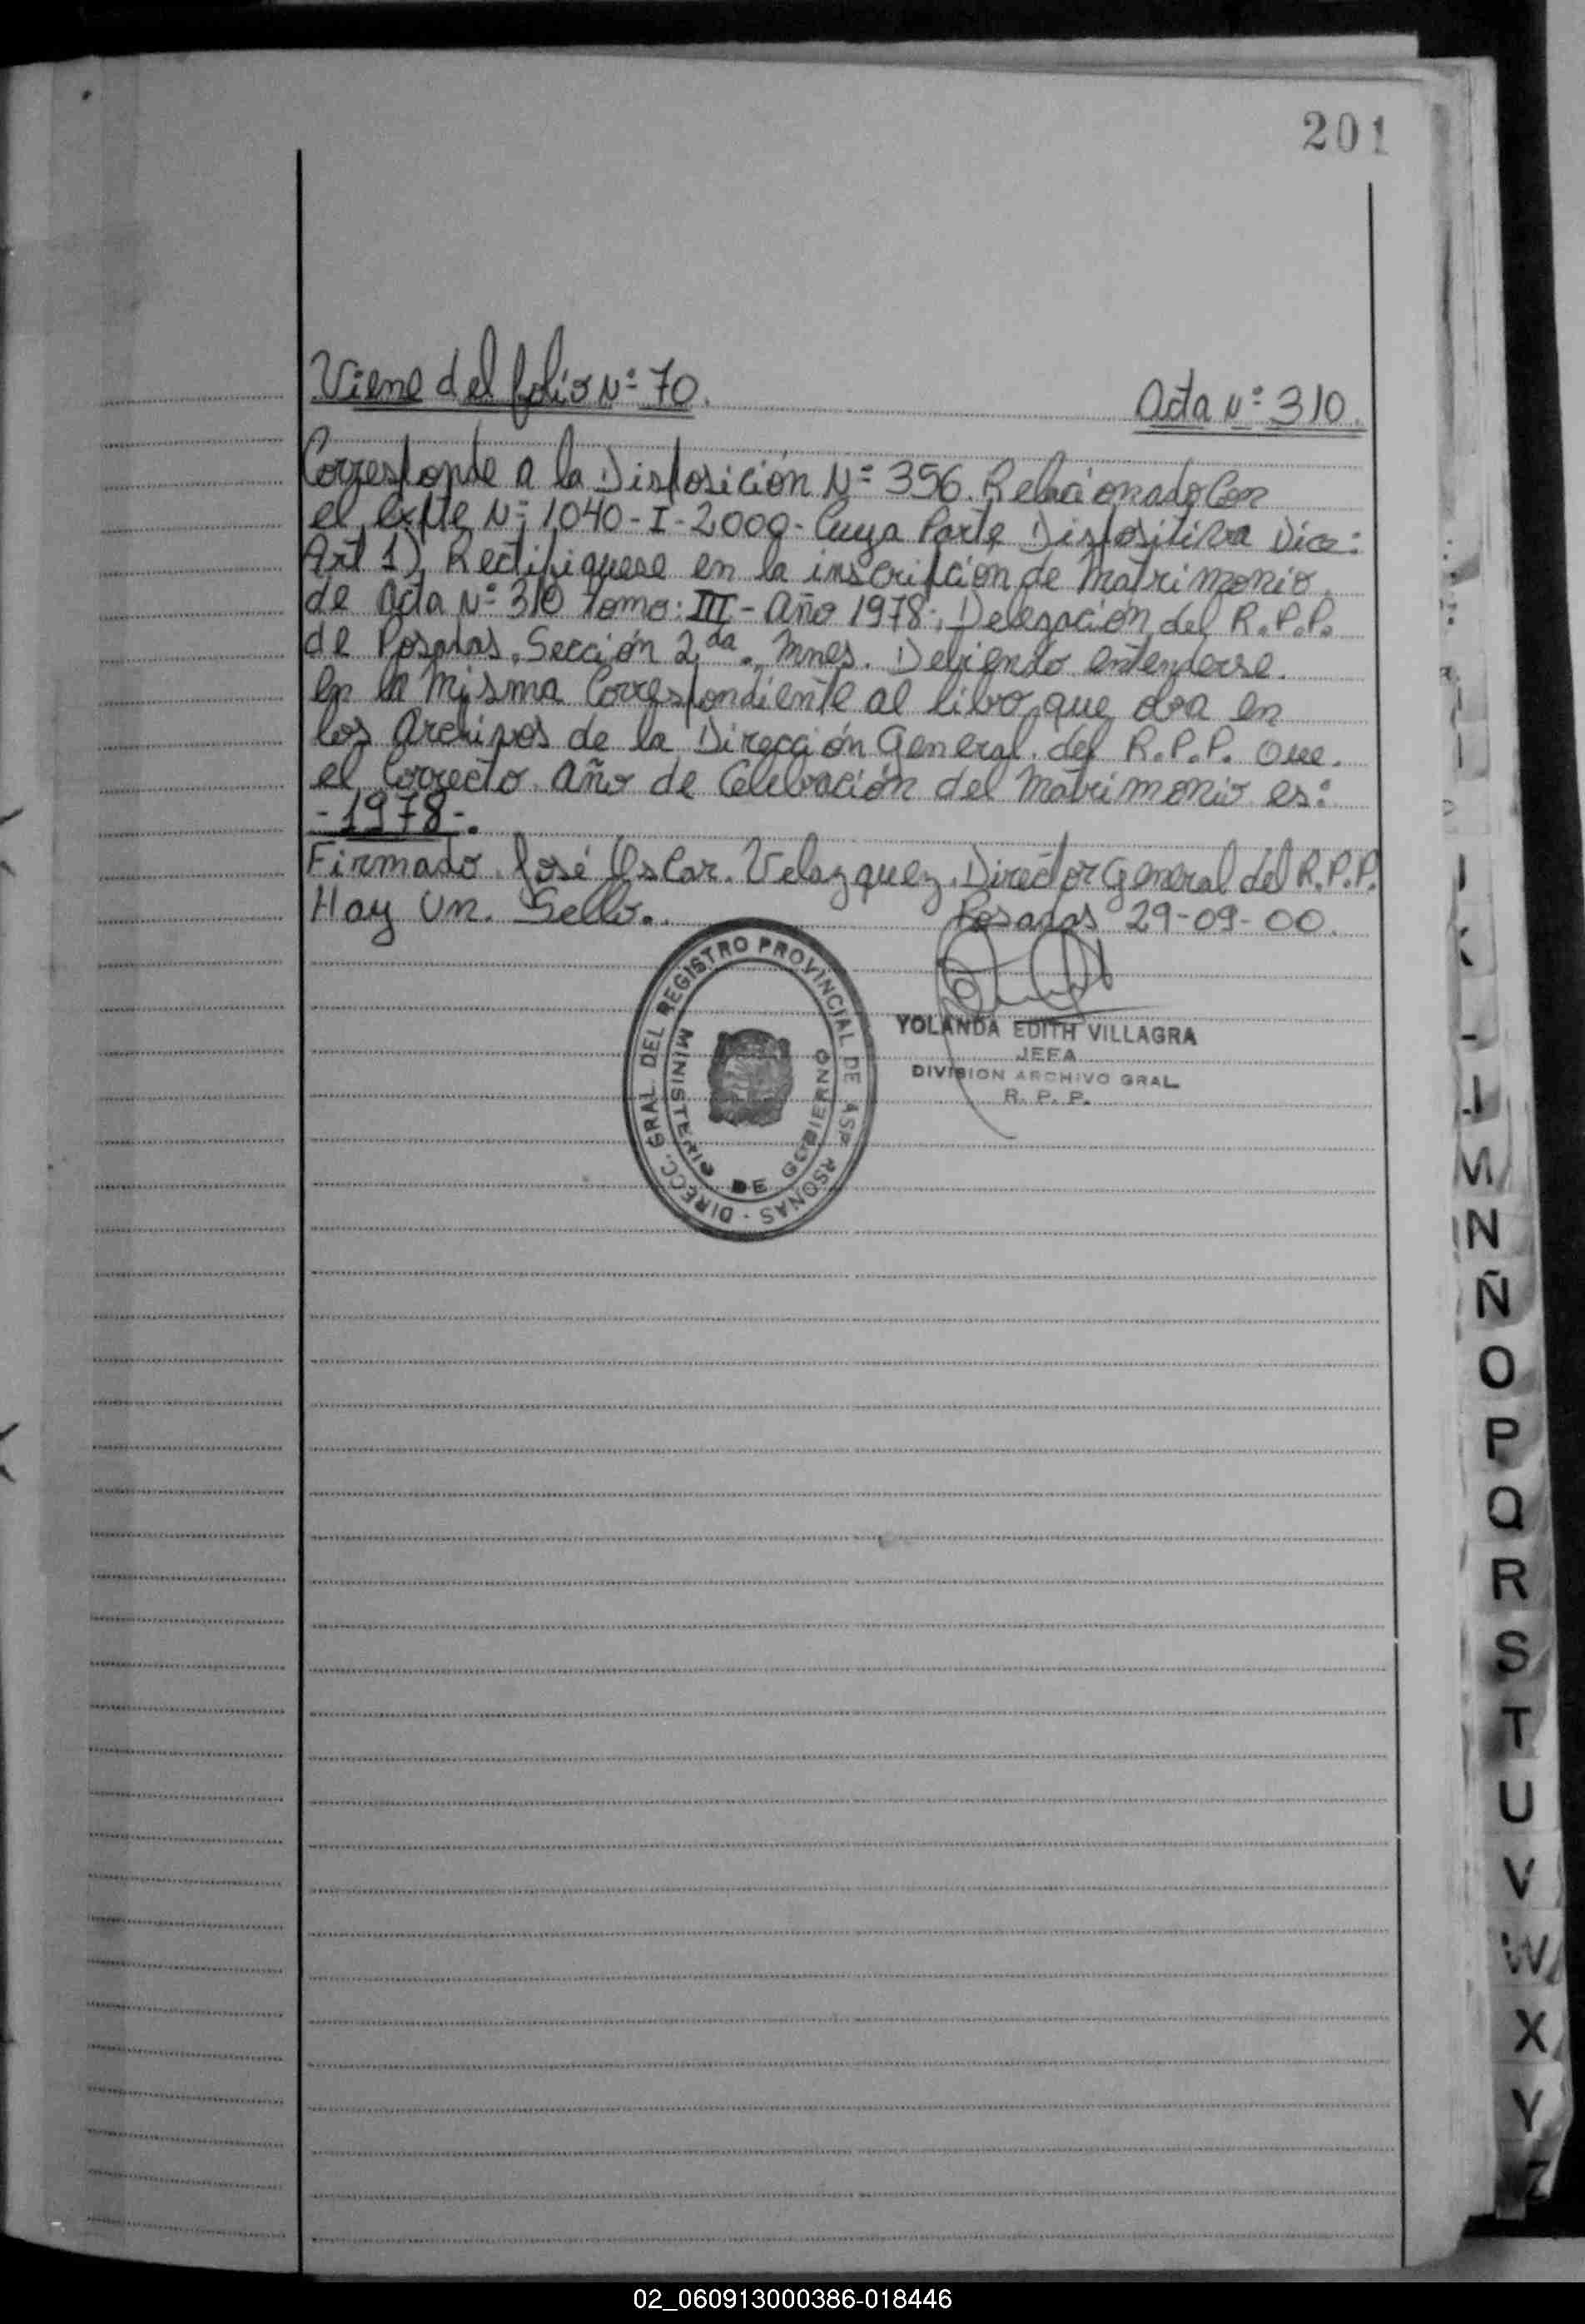 201
Viene del folio Nº 70.
Acta Nº 310.
Corresponde a la Disposición Nº 356. Relacionado Con
el expte Nº 1040-I-2000- Cuya Parte Dispositiva Dice:
Art 1) Rectifiquese en la inscripción de Matrimonio
de Acta Nº 310 Tomo: III - Año 1978; Delegación del R.P.P.
de Posadas. Sección 2da. Mnes. Debiendo entenderse.
en la Misma Correspondiente al libro que obra en
los Archivos de la Dirección General. del R.P.P. Que.
el Correcto. Año de Celebración del Matrimonio es:
-1978-.
Firmado. José Oscar. Velazquez. Director General del R.P.P.
Hay Un. Sello..
Posadas 29-09-00.
DIRECC. GRAL. DEL REGISTRO PROVINCIAL DE ASP RSONAS -
MINISTERIO DE GOBIERNO
YOLANDA EDITH VILLAGRA
JEFA
DIVISION ARCHIVO GRAL
R. P. P.
K
M
N
Ñ
O
P
Q
R
S
T
U
V
W
X
Y
Z
02_060913000386-018446